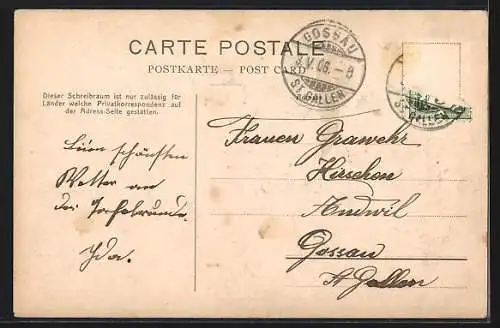 CARTE POSTALE
POSTKARTE – POST CARD
GOSSAU
V. 06. – 8
ST. GALLEN
Dieser Schreibraum ist nur zulässig für
Länder welche Privatkorrespondenz auf
der Adress-Seite gestatten.
ST. GALLEN
schönsten
Wetter an
der Tafelrunde
Ida.
Frauen Grawehr
Hirschen
Andwil
Gossau
St. Gallen